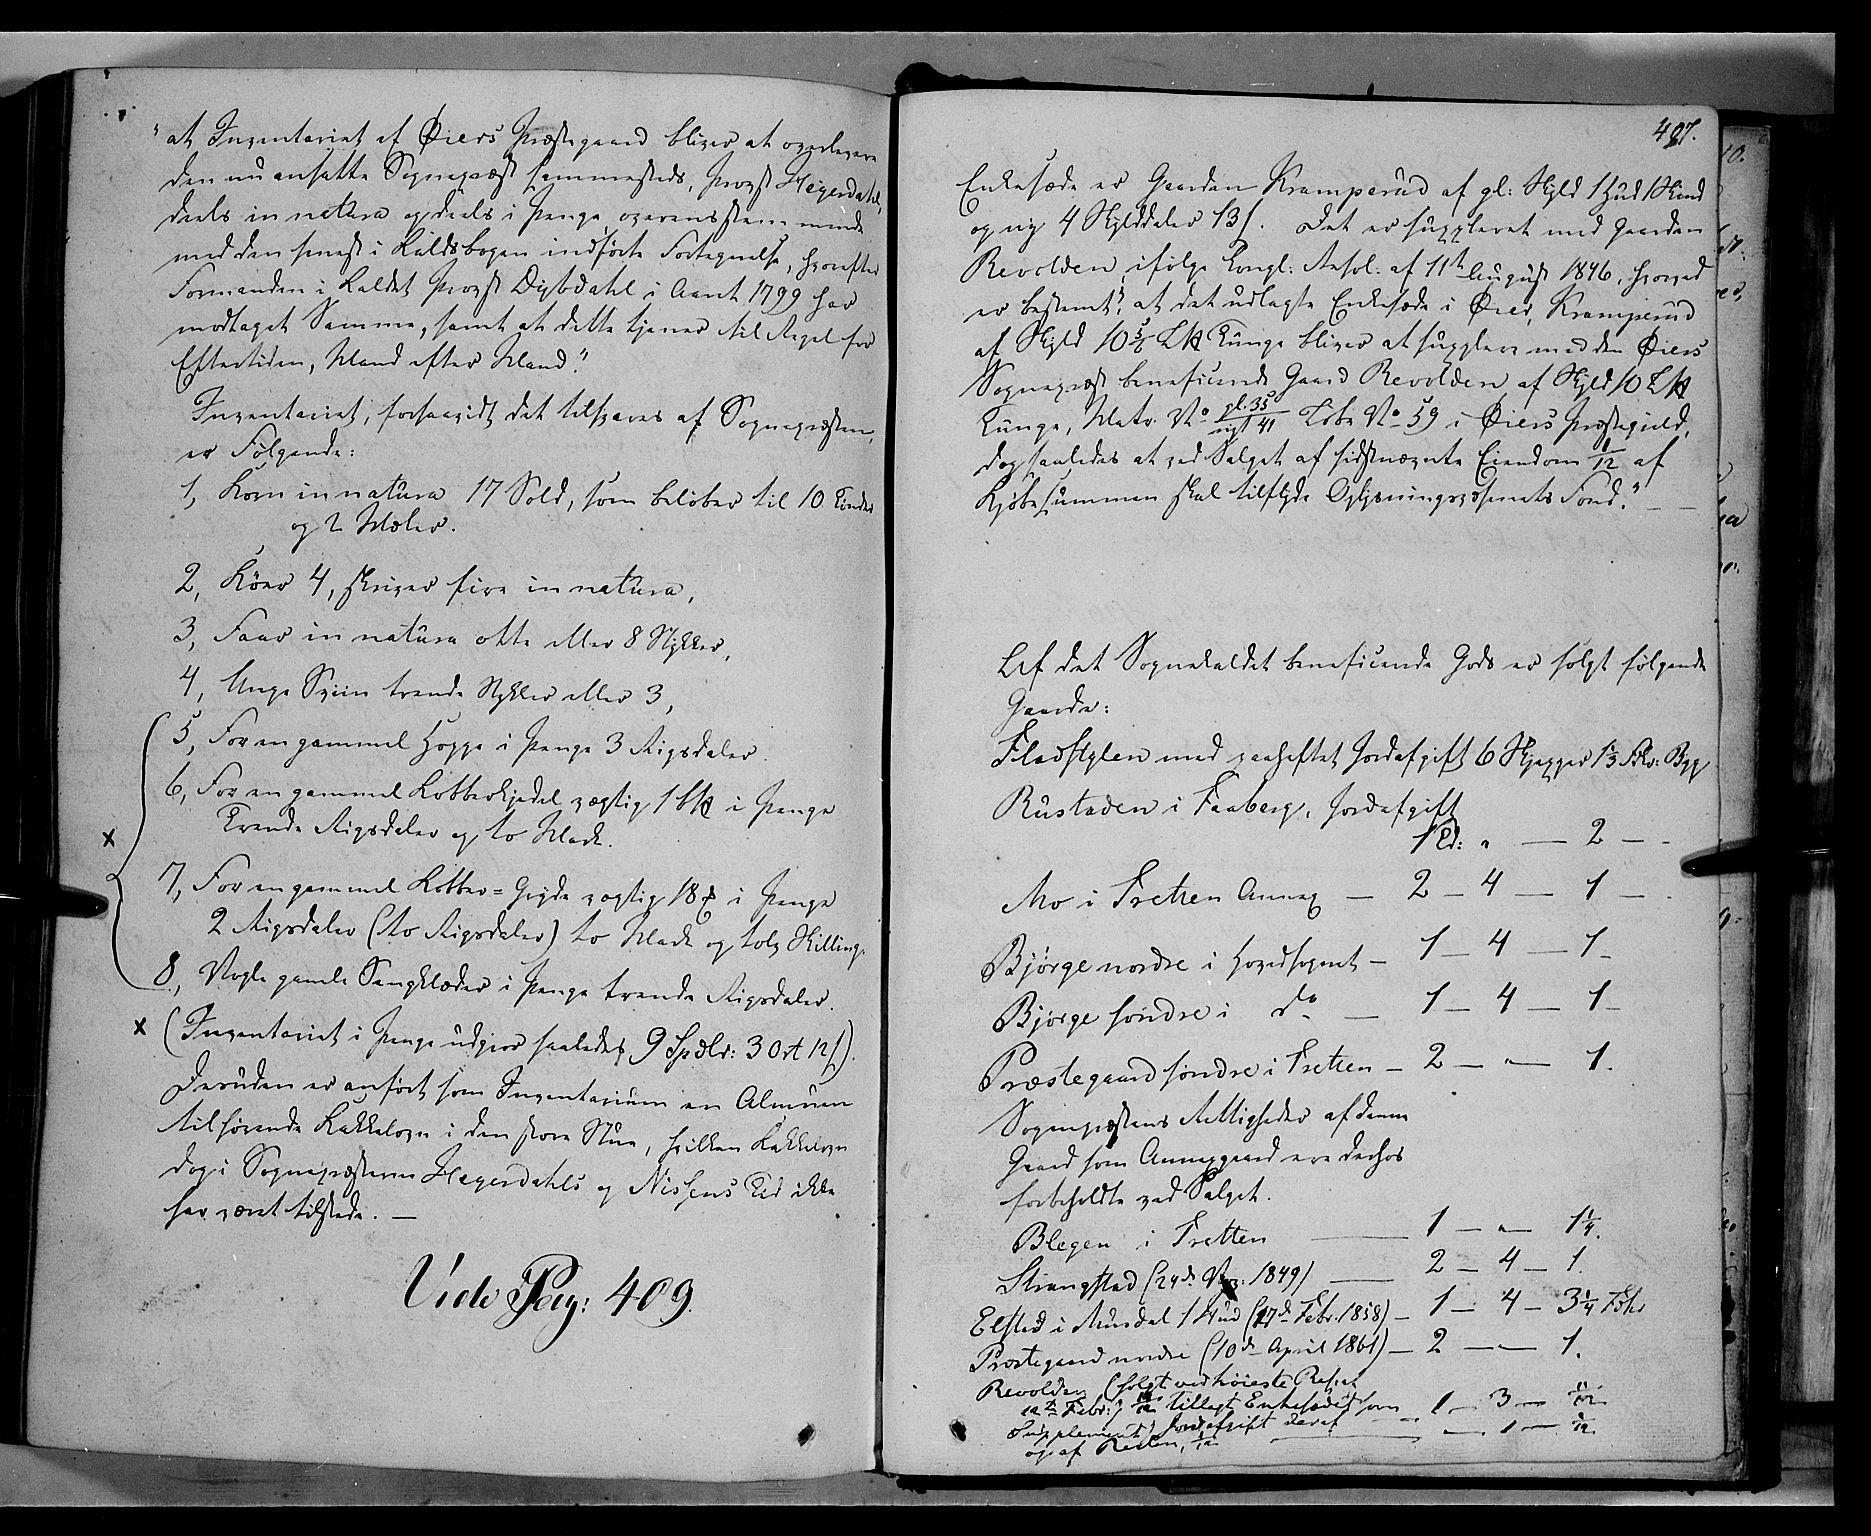 "at Inventariet af Øiers Præstegaard bliver at overlevere
den nu ansatte Sognepræst sammesteds, Provst Heyerdahl,
deels in natura og deels i Penge overensstemmende
med den senest i Kaldsbogen indførte Fortegnelse, hvorefter
Formanden i Kaldet Provst Dybdahl i Aaret 1799 har
modtaget Samme, samt at dette tjener til Regel for
Eftertiden, Mand efter Mand."
Inventariet, forsaavidt det tilsvares af Sognepræsten,
er Følgende:
1, Korn in natura 17 Sold, som beløber til 10 Tønder
og 2 Mæler.
2, Køer 4, skriver fire in natura,
3, Faar in natura otte eller 8 Stykker,
4, Unge Sviin trende Stykker eller 3,
5, For en gammel Hoppe i Penge 3 Rigsdaler.
6, For en gammel Kobberkjedel vægtig 1 b℔ i Penge
Trende Rigsdaler og to Mark.
x
7, For en gammel Kobber=Gryde vægtig 18 ℔ i Penge
2 Rigsdaler (to Rigsdaler) to Mark og tolv Skilling.
8, Nogle gamle Sengklæder i Penge trende Rigsdaler.
x (Inventariet i Penge udgjør saaledes 9 Spdlr: 3 Ort 12 s).
Desuden er anført som Inventarium en Almuen
tilhørende Kakkelovn i den store Stue, hvilken Kakkelovn
dog i Sognepræsterne Heyerdahls og Nissens Tid ikke
har været tilstede. —
Vide Pag: 409.
407.
Enkesæde er Gaarden Kramperud af gl: Skyld 1 Hud 1 Skind
og ny 4 Skylddaler 13 s. Det er suppleret med Gaarden
Revolden ifølge kongl: Resol: af 11te August 1846, hvorved
er bestemt: "at det udlagte Enkesæde i Øier, Kramperud
af Skyld 10 5/6 L℔ Tunge bliver at supplere med den Øiers
Sognepræst beneficerede Gaard Revolden af Skyld 10 L℔
Tunge, Matr. No gl. 35/nyt 41 Løbe No 59 i Øiers Præstegield,
dog saaledes at ved Salget af sidstnævnte Eiendom 1/12 af
Kjøbesummen skal tilflyde Oplysningsvæsenets Fond." — —
Af det Sognekaldet beneficerede Gods er solgt følgende
Gaarde:
med vedheftet Jordafgift 6 Skjepper 1 1/3 Fdkr: Byg
Rustaden i Faaberg, Jordafgift
1 Td: " — 2 — -
Mo i Tretten Annex — 2 — 4 — 1 — -
Bjørge nordre i Hovedsognet — 1 — 4 — 1 -
Bjørge søndre i do — 1 — 4 — 1 -
Præstegaard søndre i Tretten — 2 — " — 1.
Sognepræstens Rettigheder af denne
Gaard som Annexgaard ere derhos
forbeholdte ved Salget.
Blegen i Tretten — 1 — " — 1 1/4.
Skrangstad (24de 1849) — 2 — 4 — 1.
Elstad i Musdal 1 Hud (17de Febr. 1858) — 1 — 4 — 3 1/4 Fdkr
Præstegaard nordre (10de April 1861) — 2 — " — 1.
Revolden (solgt ved høieste Res: at
Febr:) 11/12 tillagt Enkesædet som
Supplement) Jordafgift deraf — 1 — 3 — 11/12
og af Resten, 1/12 — " — 1 — 1/12